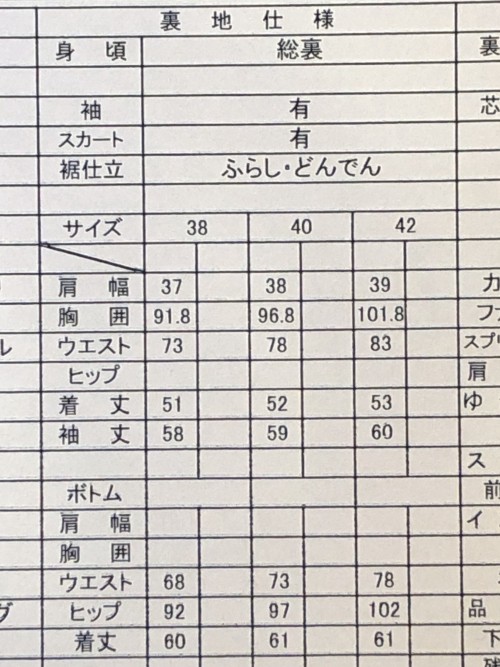 裏地仕様
身 頃 総裏 裏
袖 有 芯
スカート 有
裾仕立 ふらし・どんでん
サイズ 38 40 42
肩 幅 37 38 39 カ
胸 囲 91.8 96.8 101.8 ファ
ル ウエスト 73 78 83 スプリ
ヒップ 肩
着 丈 51 52 53 ゆ
袖 丈 58 59 60
ス
ボトム 前
肩 幅 イ
胸 囲
ウエスト 68 73 78
グ ヒップ 92 97 102 品
着丈 60 61 61 下